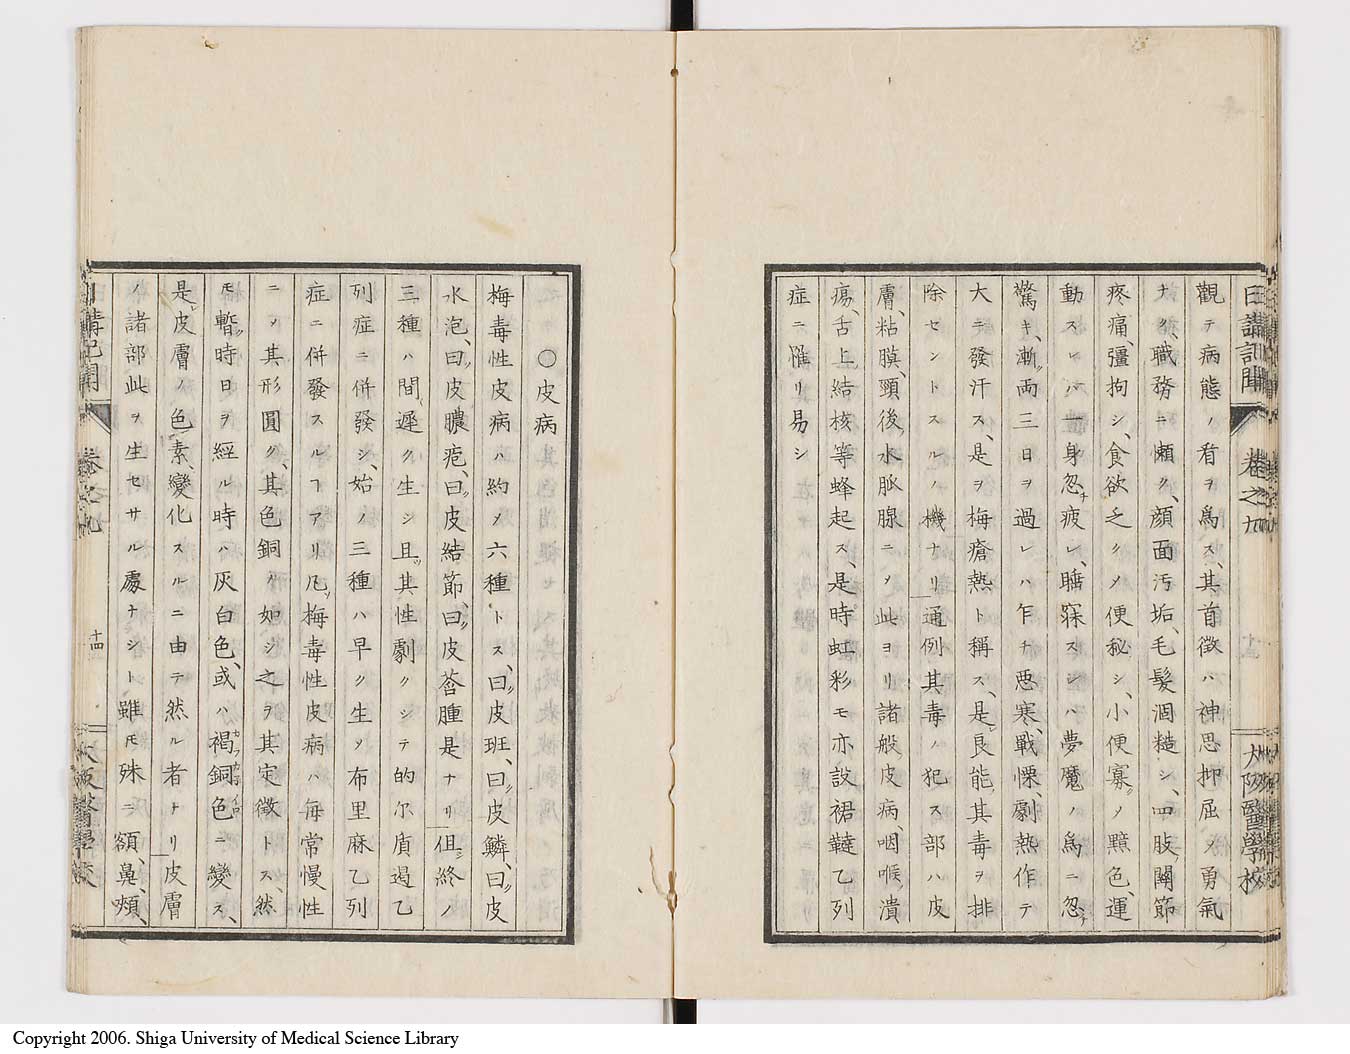 日講記聞 卷之九 大阪醫學校
觀テ病態ノ看ヲ爲ス、其首徵ハ神思抑屈〆勇氣
ナク、職務ニ懶ク、顔面汚垢、毛髮涸糙シ、四肢關節
疼痛、彊拘シ、食欲乏ク〆便秘シ、小便寡ク〆黯色、運
動スレハ一身忽チ疲レ、睡寐スレハ夢魔ノ爲ニ忽チ
驚キ、漸ク両三日ヲ過レハ乍チ悪寒、戰慄、劇熱作テ
大ニ發汗ス、是ヲ梅瘡熱ト稱ス、是レ良能、其毒ヲ排
除セントスルノ機ナリ通例其毒ノ犯ス部ハ皮
膚、粘膜、頸後、水脈腺ニ〆此ヨリ諸般ノ皮病、咽喉ノ潰
瘍、舌上ノ結核等蜂起ス、是時虹彩モ亦設裙韃乙列
症ニ罹リ易シ
○皮病
梅毒性皮病ハ約〆六種トス、曰ク皮斑、曰ク皮鱗、曰ク皮
水泡、曰ク皮膿疱、曰ク皮結節、曰ク皮蒼腫是ナリ但シ終ノ
三種ハ間遅ク生シ且ツ其性劇クシテ的尔盾遏乙
列症ニ併發シ、始ノ三種ハ早ク生〆布里麻乙列
症ニ併發スルヿアリ凡ソ梅毒性皮病ハ毎常慢性
ニ〆其形圓ク、其色銅ノ如シ之ヲ其定徵トス、然
𪜈暫ク時日ヲ經ル時ハ灰白色、或ハ褐銅色ニ變ス、
是レ皮膚ノ色素、變化スルニ由テ然ル者トナリ皮膚
ノ諸部此ヲ生セサル處ナシト雖𪜈殊ニ額、鼻、頰、
日講記聞 卷之九 十四 大阪醫學校